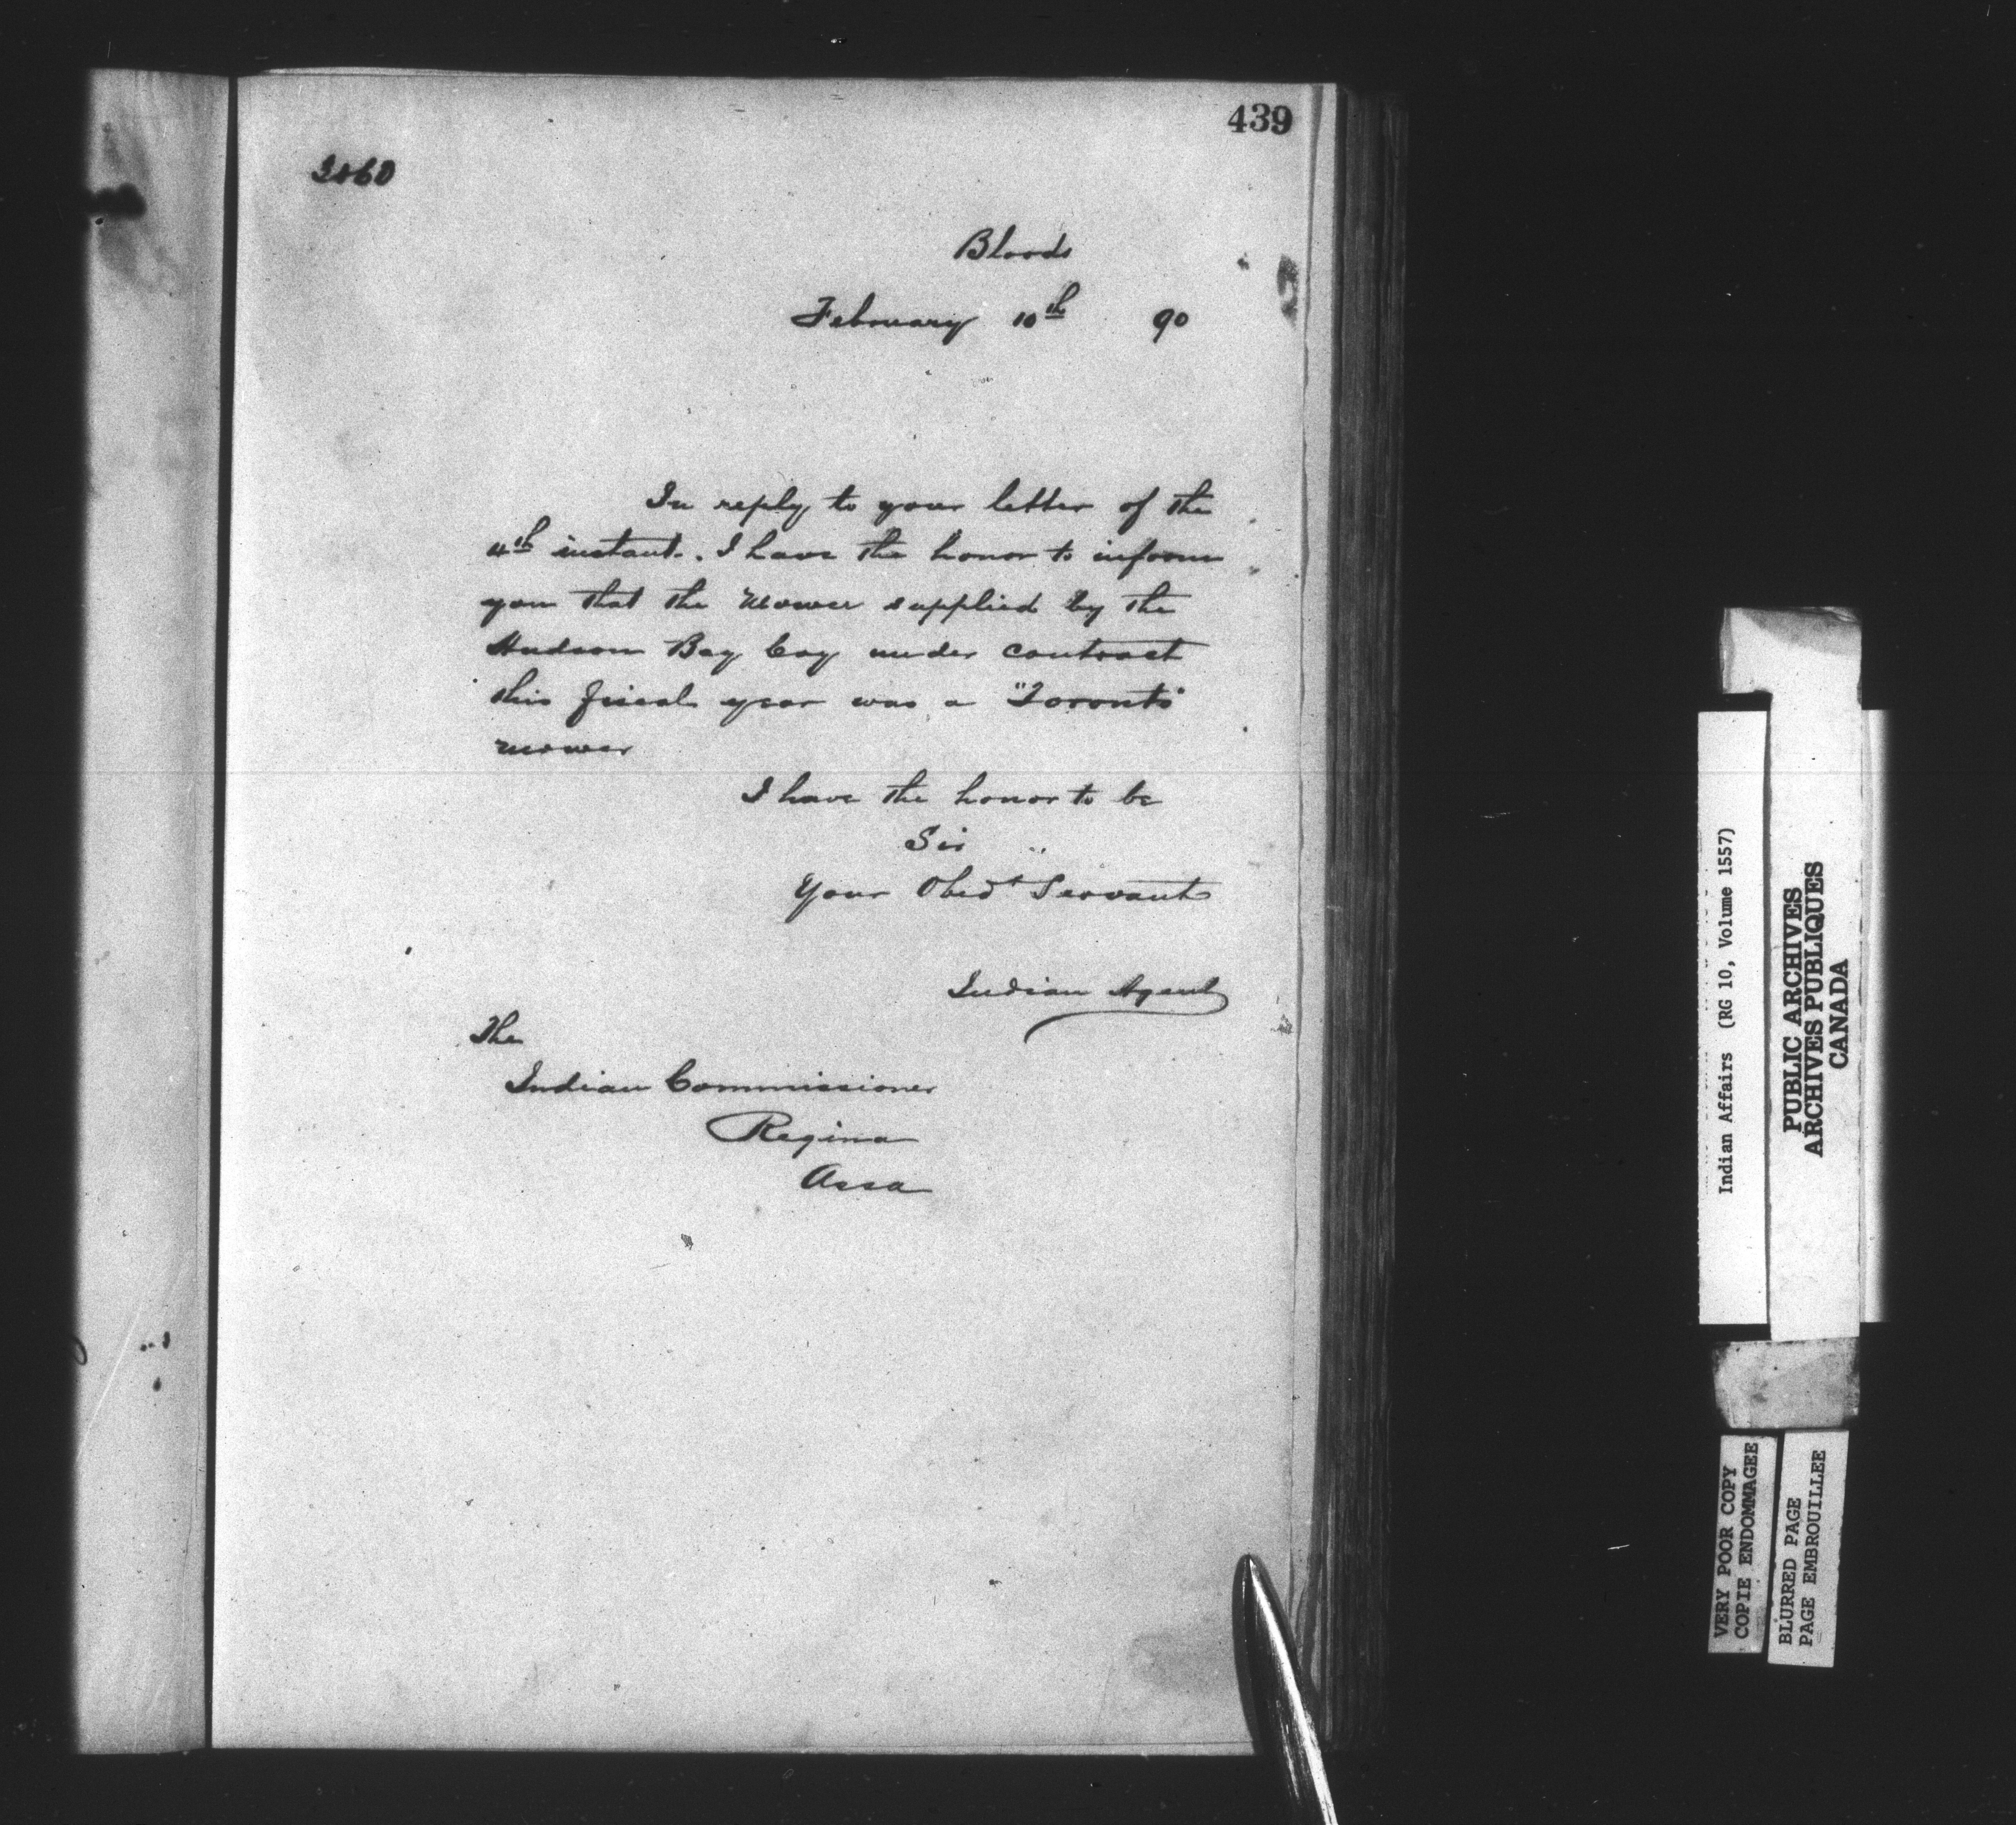 439
Bloods
February 10th 90
In reply to your letter of the
4th instant. I have the honor to inform
you that the Mower supplied by the
Hudson Bay Coy under contract
this fiscal year was a "Toronto"
mower
I have the honor to be
Sir
Your Obedt Servant
Indian Agent
The
Indian Commissioner
Regina
Assa
Indian Affairs (RG 10, Volume 1557)
PUBLIC ARCHIVES
ARCHIVES PUBLIQUES
CANADA
VERY POOR COPY
COPIE ENDOMMAGEE
BLURRED PAGE
PAGE EMBROUILLEE